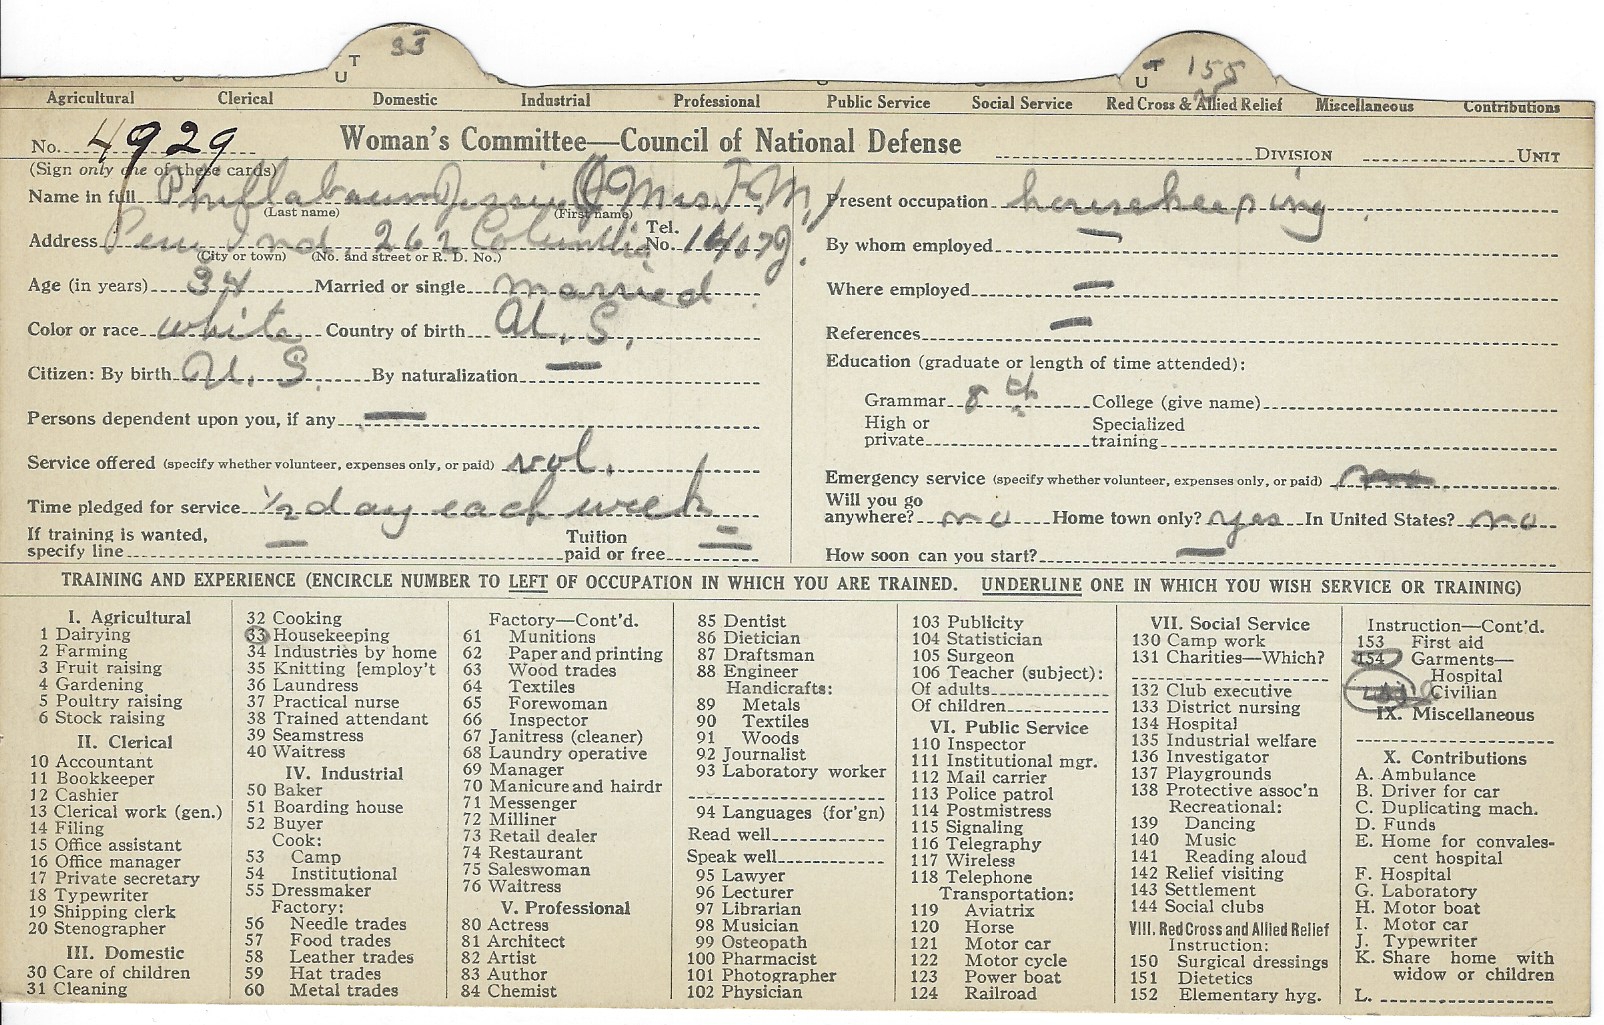 T
U 33
T
U 155
Agricultural Clerical Domestic Industrial Professional Public Service Social Service Red Cross & Allied Relief Miscellaneous Contributions
No. 4929 Woman's Committee—Council of National Defense DIVISION UNIT
(Sign only one of these cards)
Name in full Phillabaum Jessie (Mrs. F. M.)
(Last name) (First name)
Address Peru Ind. 262 Columbia Tel. No.
(City or town) (No. and street or R. D. No.)
Age (in years) 34 Married or single married
Color or race white Country of birth U. S.
Citizen: By birth U. S. By naturalization —
Persons dependent upon you, if any —
Service offered (specify whether volunteer, expenses only, or paid) vol.
Time pledged for service ½ day each week
If training is wanted,
specify line — Tuition
paid or free —
Present occupation housekeeping
By whom employed —
Where employed —
References —
Education (graduate or length of time attended):
Grammar 8th College (give name)
High or
private Specialized
training
Emergency service (specify whether volunteer, expenses only, or paid)
Will you go
anywhere? no Home town only? yes In United States? no
How soon can you start? —
TRAINING AND EXPERIENCE (ENCIRCLE NUMBER TO LEFT OF OCCUPATION IN WHICH YOU ARE TRAINED. UNDERLINE ONE IN WHICH YOU WISH SERVICE OR TRAINING)
I. Agricultural
1 Dairying
2 Farming
3 Fruit raising
4 Gardening
5 Poultry raising
6 Stock raising
II. Clerical
10 Accountant
11 Bookkeeper
12 Cashier
13 Clerical work (gen.)
14 Filing
15 Office assistant
16 Office manager
17 Private secretary
18 Typewriter
19 Shipping clerk
20 Stenographer
III. Domestic
30 Care of children
31 Cleaning
32 Cooking
33 Housekeeping
34 Industries by home
35 Knitting [employ't
36 Laundress
37 Practical nurse
38 Trained attendant
39 Seamstress
40 Waitress
IV. Industrial
50 Baker
51 Boarding house
52 Buyer
Cook:
53 Camp
54 Institutional
55 Dressmaker
Factory:
56 Needle trades
57 Food trades
58 Leather trades
59 Hat trades
60 Metal trades
Factory—Cont'd.
61 Munitions
62 Paper and printing
63 Wood trades
64 Textiles
65 Forewoman
66 Inspector
67 Janitress (cleaner)
68 Laundry operative
69 Manager
70 Manicure and hairdr
71 Messenger
72 Milliner
73 Retail dealer
74 Restaurant
75 Saleswoman
76 Waitress
V. Professional
80 Actress
81 Architect
82 Artist
83 Author
84 Chemist
85 Dentist
86 Dietician
87 Draftsman
88 Engineer
Handicrafts:
89 Metals
90 Textiles
91 Woods
92 Journalist
93 Laboratory worker
94 Languages (for'gn)
Read well
Speak well
95 Lawyer
96 Lecturer
97 Librarian
98 Musician
99 Osteopath
100 Pharmacist
101 Photographer
102 Physician
103 Publicity
104 Statistician
105 Surgeon
106 Teacher (subject):
Of adults
Of children
VI. Public Service
110 Inspector
111 Institutional mgr.
112 Mail carrier
113 Police patrol
114 Postmistress
115 Signaling
116 Telegraphy
117 Wireless
118 Telephone
Transportation:
119 Aviatrix
120 Horse
121 Motor car
122 Motor cycle
123 Power boat
124 Railroad
VII. Social Service
130 Camp work
131 Charities—Which?
132 Club executive
133 District nursing
134 Hospital
135 Industrial welfare
136 Investigator
137 Playgrounds
138 Protective assoc'n
Recreational:
139 Dancing
140 Music
141 Reading aloud
142 Relief visiting
143 Settlement
144 Social clubs
VIII. Red Cross and Allied Relief
Instruction:
150 Surgical dressings
151 Dietetics
152 Elementary hyg.
Instruction—Cont'd.
153 First aid
154 Garments—
Hospital
Civilian
IX. Miscellaneous
X. Contributions
A. Ambulance
B. Driver for car
C. Duplicating mach.
D. Funds
E. Home for convales-
cent hospital
F. Hospital
G. Laboratory
H. Motor boat
I. Motor car
J. Typewriter
K. Share home with
widow or children
L.